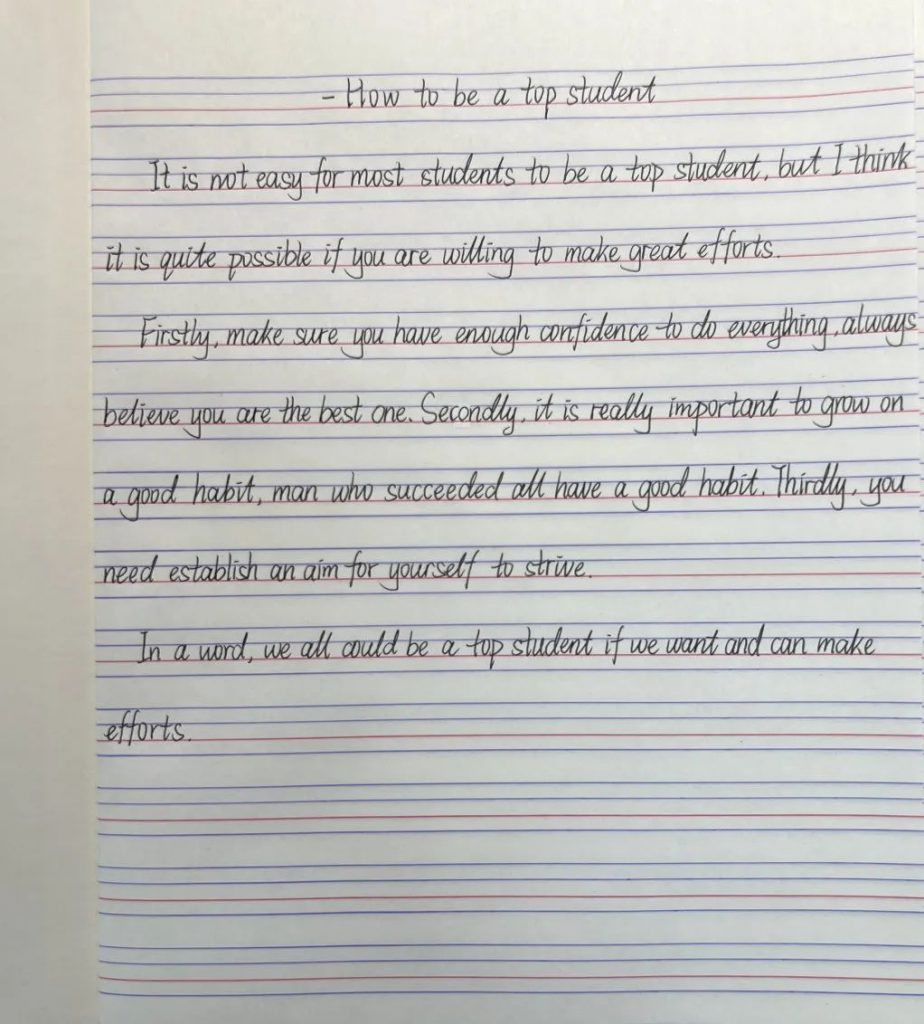 - How to be a top student
It is not easy for most students to be a top student, but I think
it is quite possible if you are willing to make great efforts.
Firstly, make sure you have enough confidence to do everything, always
believe you are the best one. Secondly, it is really important to grow on
a good habit, man who succeeded all have a good habit. Thirdly, you
need establish an aim for yourself to strive.
In a word, we all could be a top student if we want and can make
efforts.